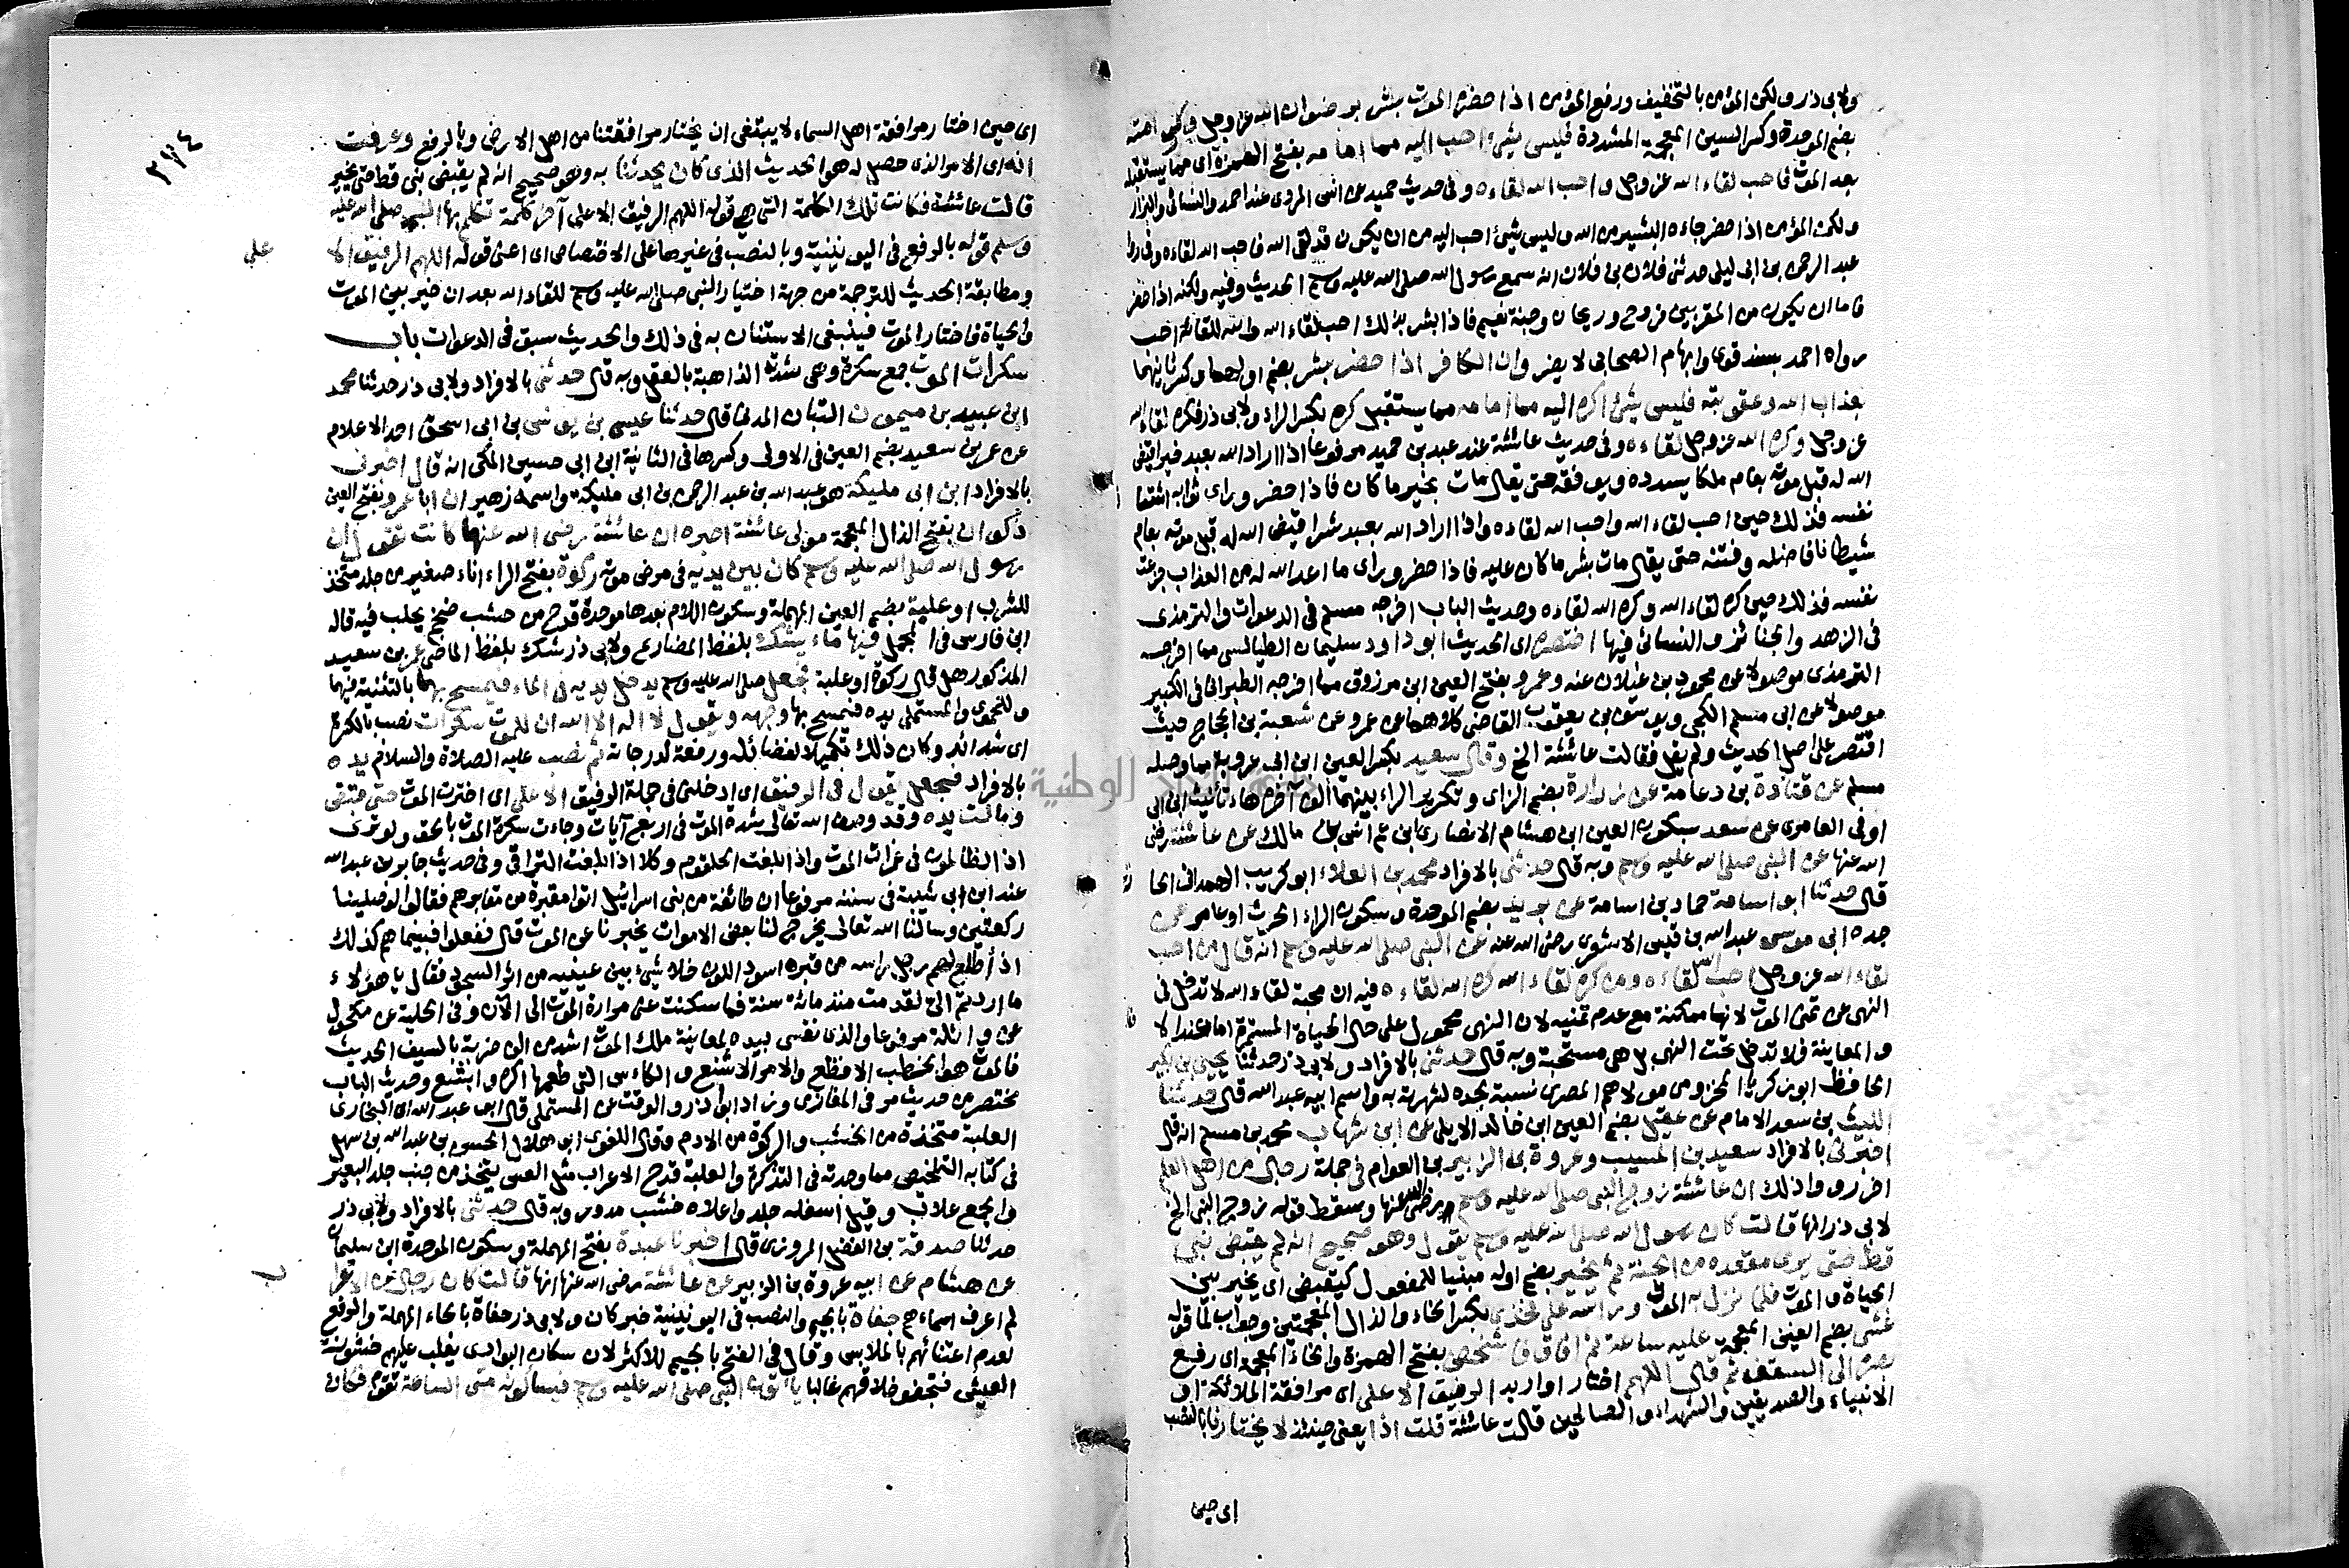 ولابى ذر ولكن المؤمن بالتخفيف ورفع المؤمن اذا حضره الموت بشر برضوان الله عز وجل وكرامته
بضم الموحدة وكسر الشين المعجمة المشددة فليس شئ احب اليه مما امامه بفتح الهمزة اى مما يستقبله
بعد الموت فاحب لقاء الله عز وجل واحب الله لقاءه وفى حديث حميد عن انس المروى عند احمد والنسائى والبزار
ولكن المؤمن اذا حضر جاءه البشير من الله وليس شئ احب اليه من ان يكون قد لقى الله فاحب الله لقاءه وفى رواية
عبد الرحمن بن ابى ليلى حدثنى فلان بن فلان انه سمع رسول الله صلى الله عليه وسلم الحديث وفيه ولكنه اذا حضر
فاما ان يكون من المقربين فروح وريحان وجنة نعيم فاذا بشر بذلك احب لقاء الله والله للقائه احب
رواه احمد بسند قوى وابهام الصحابى لا يضر وان الكافر اذا حضر بشر بضم اولهما وكسر ثانيهما
بعذاب الله وعقوبته فليس شئ اكره اليه مما امامه مما يستقبل كره بكسر الراء ولابى ذر فكره لقاء الله
عز وجل وكره الله عز وجل لقاءه وفى حديث عائشة عند عبد بن حميد مرفوعا اذا اراد الله بعبد خيرا قيض
الله له قبل موته بعام ملكا يسدده ويوفقه حتى يقال مات بخير ما كان فاذا حضر وراى ثوابه اشتاقت
نفسه فذلك حين احب لقاء الله واحب الله لقاءه واذا اراد الله بعبد شرا قيض الله له قبل موته بعام
شيطانا فاضله وفتنه حتى يقال مات بشر ما كان عليه فاذا حضر وراى ما اعد الله له من العذاب جزعت
نفسه فذلك حين كره لقاء الله وكره الله لقاءه وحديث الباب اخرجه مسلم فى الدعوات والترمذى
فى الزهد والجنائز والنسائى فيها اختصره اى الحديث ابو داود سليمان الطيالسى مما اخرجه
الترمذى موصولا عن محمود بن غيلان عنه وعمرو بفتح العين ابن مرزوق مما اخرجه الطبرانى فى الكبير
موصولا عن ابى مسلم الكجى ويوسف بن يعقوب القاضى كلاهما عن عمرو عن شعبة بن الحجاج حيث
اقتصر على اصل الحديث ولم يقل فقالت عائشة الخ وقال سعيد بكسر العين ابن ابى عروبة مما وصله
مسلم عن قتادة بن دعامة عن زرارة بضم الزاى وتكرير الراء بينهما الف آخره هاء تانيث ابن ابى
اوفى العامرى عن سعد بسكون العين ابن هشام الانصارى ابن عم انس بن مالك عن عائشة رضى
الله عنها عن النبى صلى الله عليه وسلم وبه قال حدثنى بالافراد محمد بن العلاء ابو كريب الهمدانى الحا
قال حدثنا ابو اسامة حماد بن اسامة عن بريد بضم الموحدة وسكون الراء الحرث او عامر عن
جده ابى موسى عبد الله بن قيس الاشعرى رضى الله عنه عن النبى صلى الله عليه وسلم انه قال من احب
لقاء الله عز وجل احب الله لقاءه ومن كره لقاء الله كره الله لقاءه فيه ان محبة لقاء الله لا تدخل فى
النهى عن تمنى الموت لانها ممكنة مع عدم تمنيه لان النهى محمول على حال الحياة المستمرة اما عند الا
والمعاينة فلا تدخل تحت النهى بل هى مستحبة وبه قال حدثنى بالافراد ولابى ذر حدثنا يحيى بن بكير
الحافظ ابو زكريا المخزومى مولاهم المصرى نسبة لجده لشهرته به واسم ابيه عبد الله قال حدثنا
الليث بن سعد الامام عن عقيل بضم العين ابن خالد الايلى عن ابن شهاب محمد بن مسلم انه قال
اخبرنى بالافراد سعيد بن المسيب وعروة بن الزبير بن العوام فى جملة رجال من اهل العلم
اخر رووا ذلك ان عائشة زوج النبى صلى الله عليه وسلم ورضى الله عنها وسقط قوله زوج النبى الخ
لابى ذر انها قالت كان رسول الله صلى الله عليه وسلم يقول وهو صحيح انه لم يقبض نبى
قط حتى يرى مقعده من الجنة ثم يخير بضم اوله مبنيا للمفعول كيقبض اى يخير بين
الحياة والموت فلما نزل به الموت وراسه على فخذى بكسر الخاء والذال المعجمتين وجواب لما قوله
غشى بضم الغين المعجمة عليه ساعة ثم افاق فاشخص بفتح الهمزة والخاء المعجمة اى رفع
بصره الى السقف ثم قال اللهم اختار او اريد الرفيق الاعلى اى موافقة الملائكة او
الانبياء والصديقين والشهداء والصالحين قالت عائشة قلت اذا يعنى حينئذ لا يختارنا بالنصب
اى حين
٢٧٤
اى حين اختار موافقة اهل السماء لا ينبغى ان يختار موافقتنا من اهل الارض وبالرفع وعرفت
انه اى الامر الذى حصل له هو الحديث الذى كان يحدثنا به وهو صحيح انه لم يقبض نبى قط حتى يخير
قالت عائشة فكانت تلك الكلمة التى هى قوله اللهم الرفيق الاعلى آخر كلمة تكلم بها النبى صلى الله عليه
وسلم قوله بالرفع فى اليونينية وبالنصب فى غيرها على الاختصاص اى اعنى قوله اللهم الرفيق الا
على
ومطابقة الحديث للترجمة من جهة اختيار النبى صلى الله عليه وسلم للقاء الله بعد ان خير بين الموت
والحياة فاختار الموت فينبغى الاستنان به فى ذلك والحديث سبق فى الدعوات باب
سكرات الموت جمع سكرة وهى شدته الذاهبة بالعقل وبه قال حدثنى بالافراد ولابى ذر حدثنا محمد
ابن عبيد بن ميمون التبان المدنى قال حدثنا عيسى بن يونس بن ابى اسحق احد الاعلام
عن عمر بن سعيد بضم العين فى الاولى وكسرها فى الثانية ابن ابى حسين المكى انه قال اخبرنى
بالافراد ابن ابى مليكة هو عبد الله بن عبد الرحمن بن ابى مليكة واسمه زهير ان ابا عمرو بفتح العين
ذكوان بفتح الذال المعجمة مولى عائشة اخبره ان عائشة رضى الله عنها كانت تقول ان
رسول الله صلى الله عليه وسلم كان بين يديه فى مرض موته ركوة بفتح الراء اناء صغير من جلد متخذ
للشرب او علبة بضم العين المهملة وسكون اللام بعدها موحدة قدح من خشب ضخم يحلب فيه قاله
ابن فارس فى المجمل فيها ماء يشك بلفظ المضارع ولابى ذر شك بلفظ الماضى عمر بن سعيد
المذكور هل قال ركوة او علبة فجعل صلى الله عليه وسلم يدخل يديه فى الماء فيمسح بهما بالتثنية فيهما
وللحموى والمستملى يده فيمسح بها وجهه ويقول لا اله الا الله ان للموت سكرات نصب بالكسرة
اى شدائد وكان ذلك تكميلا لفضائله ورفعة لدرجاته ثم نصب عليه الصلاة والسلام يده
بالافراد فجعل يقول فى الرفيق اى ادخلنى فى جملة الرفيق الاعلى اى اخترت الموت حتى قبض
ومالت يده وقد وصف الله تعالى شدة الموت فى اربع آيات وجاءت سكرة الموت بالحق ولو ترى
اذ الظالمون فى غمرات الموت واذا بلغت الحلقوم وكلا اذا بلغت التراقى وفى حديث جابر بن عبد الله
عند ابن ابى شيبة فى سننه مرفوعا ان طائفة من بنى اسرائيل اتوا مقبرة من مقابرهم فقالوا لو صلينا
ركعتين وسالنا الله تعالى يخرج لنا بعض الاموات يخبرنا عن الموت قال ففعلوا فبينما هم كذلك
اذ أطلع لهم رجل راسه من قبره اسود اللون خلا شئ بين عينيه من اثر السجود فقال يا هؤلاء
ما اردتم الى لقد مت منذ مائة سنة فما سكنت عنى مرارة الموت الى الآن وفى الحلية عن مكحول
عن واثلة مرفوعا والذى نفسى بيده لمعاينة ملك الموت اشد من الف ضربة بالسيف الحديث
فالموت هو الخطب الافظع والامر الاشنع والكاس التى طعمها اكره وابشع وحديث الباب
مختصر من حديث مر فى المغازى وزاد ابو اذر والوقت عن المستملى قال ابو عبد الله اى البخارى
العلبة متخذة من الخشب والركوة من الادم وقال اللغوى ابو هلال الحسن بن عبد الله بن سهل
فى كتابه التلخيص مما وجدته فى التذكرة والعلبة قدح الاعراب مثل العس يتخذ من جنب جلد البعير
والجمع علاب وقيل اسفله جلد واعلاه خشب مدور وبه قال حدثنى بالافراد ولابى ذر
حدثنا صدقة بن الفضل المروزى قال اخبرنا عبدة بفتح المهملة وسكون الموحدة ابن سليمان
عن هشام عن ابيه عروة بن الزبير عن عائشة رضى الله عنها انها قالت كان رجال من الاعرا
ب
لم اعرف اسماءهم جفاة بالجيم والنصب فى اليونينية خبر كان ولابى ذر حفاة بالحاء المهملة والرفع
لعدم اعتنائهم بالملابس وقال فى الفتح بالجيم للاكثر لان سكان البوادى يغلب عليهم خشونة
العيش فتجفو اخلاقهم غالبا ياتون النبى صلى الله عليه وسلم فيسالونه متى الساعة تقوم فكان